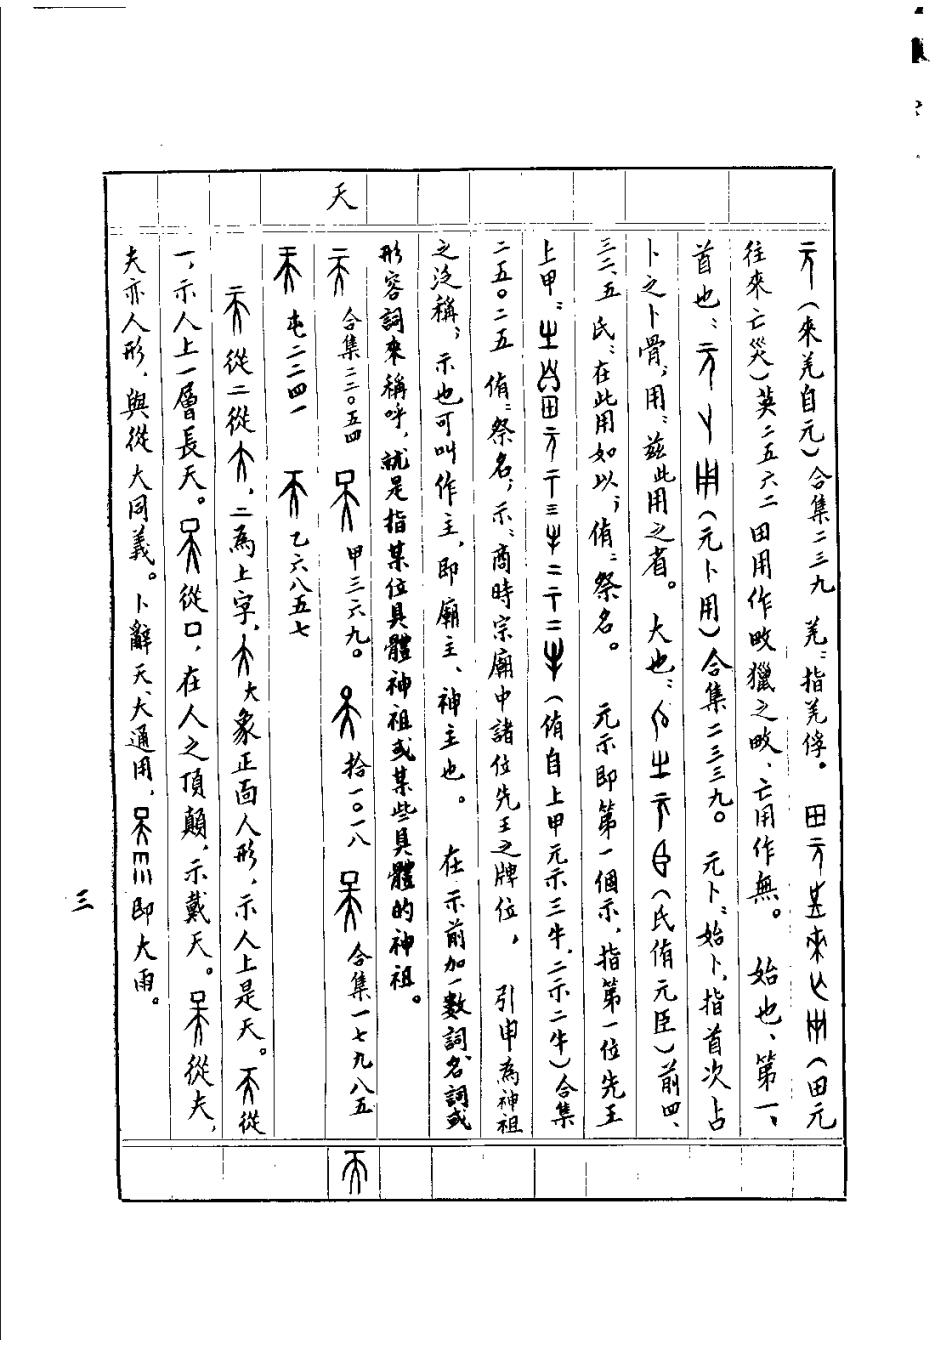 元（來羌自元）合集二三九　羌：指羌俘。　（田元
往來亡災）英二五六二　田用作畋獵之畋、亡用作無。　始也、第一、
首也：（元卜用）合集二三三九。　元卜：始卜，指首次占
卜之卜骨，用：茲此用之省。　大也：（氏侑元臣）前四、
三二、五　氏：在此用如以；侑：祭名。　元示即第一個示，指第一位先王
上甲：（侑自上甲元示三牛，二示二牛）合集
二五〇二五　侑：祭名；示：商時宗廟中諸位先王之牌位，　引申為神祖
之泛稱；示也可叫作主，即廟主、神主也。　在示前加一數詞、名詞或
形容詞來稱呼，就是指某位具體神祖或某些具體的神祖。
天
合集二二〇五四　甲三六九。　拾一〇·一八　合集一七九八五
屯二二四一　乙六八五七
從二從大，二為上字，大象正面人形，示人上是天。從
一，示人上一層長天。從口，在人之頂顛，示戴天。從夫，
夫亦人形，與從大同義。卜辭天、大通用，即大雨。
三